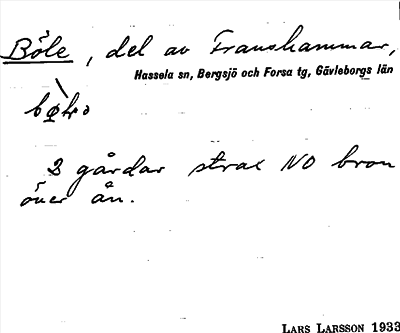 Böle, del av Franshammar,
Hassela sn, Bergsjö och Forsa tg, Gävleborgs län
3 gårdar strax NO bron
över ån.
LARS LARSSON 1933